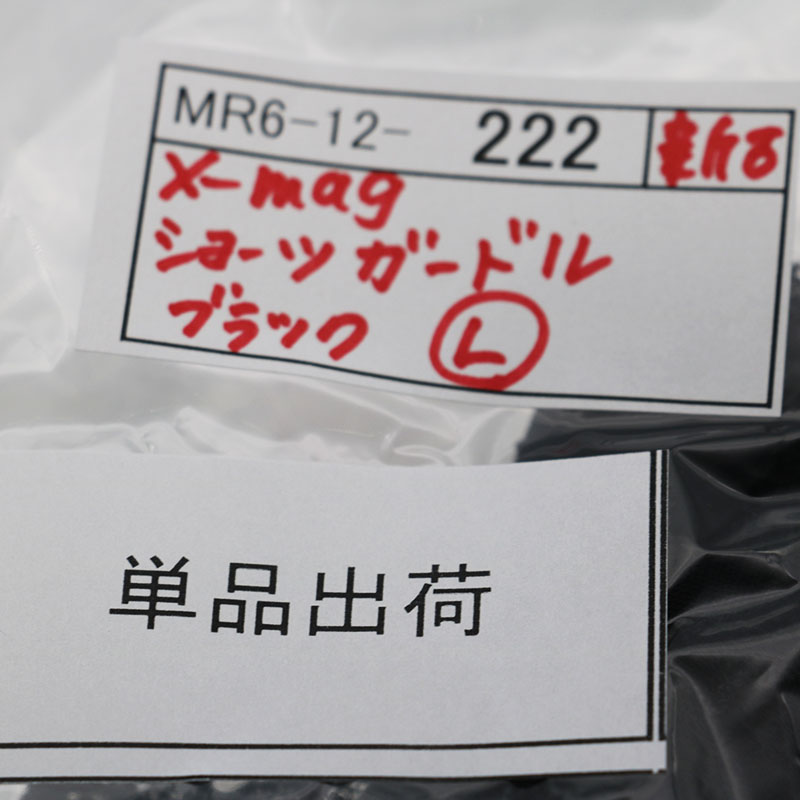 MR6-12- 222
X-mag
ショーツガードル
ブラック Ⓛ
単品出荷